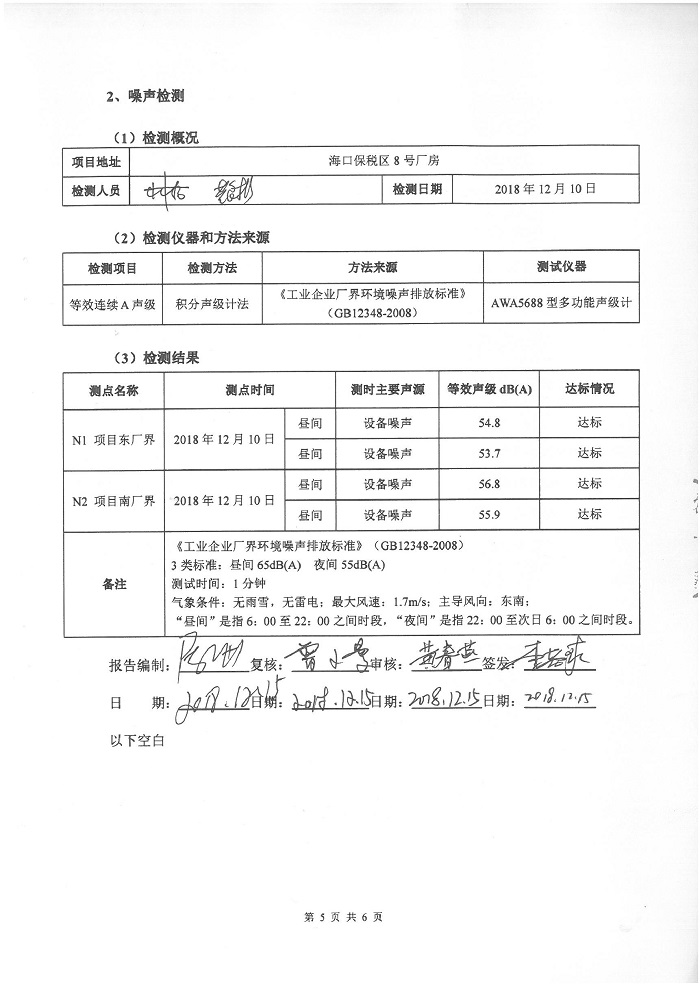 2、噪声检测
（1）检测概况
项目地址 海口保税区 8 号厂房
检测人员 检测日期 2018 年 12 月 10 日
（2）检测仪器和方法来源
检测项目 检测方法 方法来源 测试仪器
等效连续 A 声级 积分声级计法 《工业企业厂界环境噪声排放标准》（GB12348-2008） AWA5688 型多功能声级计
（3）检测结果
测点名称 测点时间 测时主要声源 等效声级 dB(A) 达标情况
N1 项目东厂界 2018 年 12 月 10 日 昼间 设备噪声 54.8 达标
昼间 设备噪声 53.7 达标
N2 项目南厂界 2018 年 12 月 10 日 昼间 设备噪声 56.8 达标
昼间 设备噪声 55.9 达标
备注
《工业企业厂界环境噪声排放标准》（GB12348-2008）
3 类标准：昼间 65dB(A) 夜间 55dB(A)
测试时间：1 分钟
气象条件：无雨雪，无雷电；最大风速：1.7m/s；主导风向：东南；
“昼间”是指 6：00 至 22：00 之间时段，“夜间”是指 22：00 至次日 6：00 之间时段。
报告编制： 复核： 审核：黄春燕 签发：
日 期：2018.12.15 日期：2018.12.15 日期：2018.12.15 日期：2018.12.15
以下空白
第 5 页 共 6 页